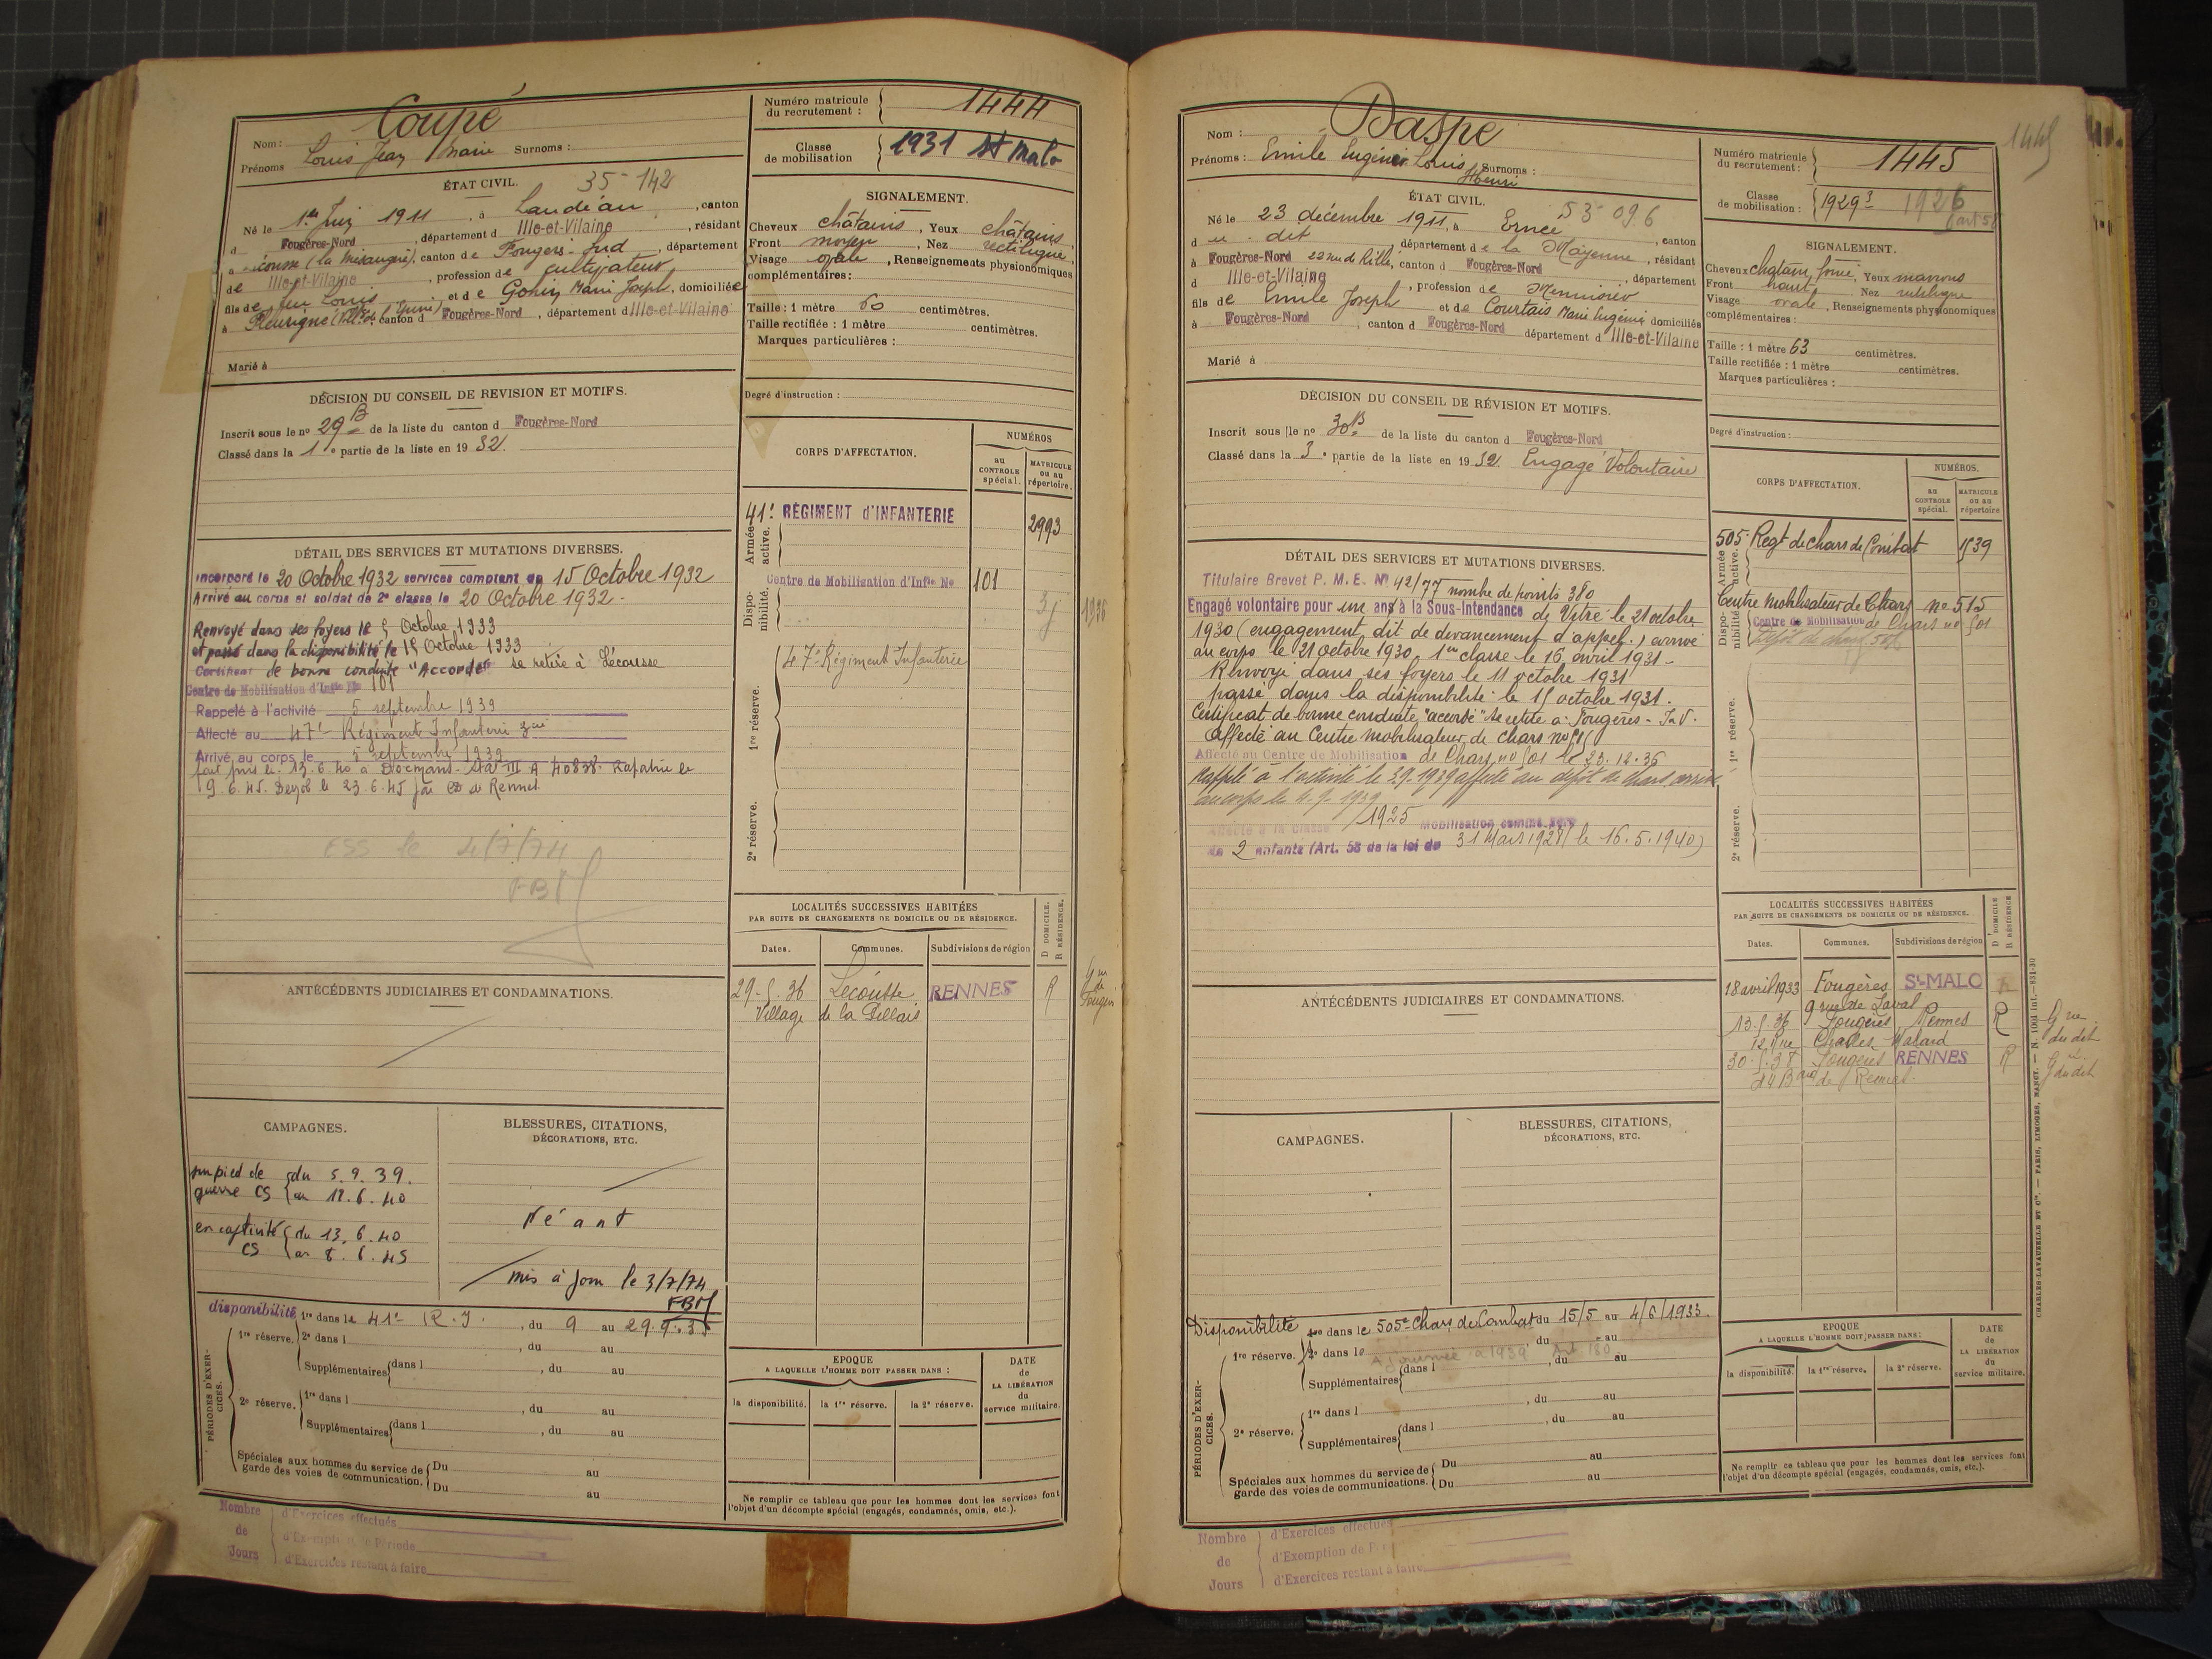 Nom : Coupé
Prénoms Louis Jean Marie Surnoms :
ÉTAT CIVIL. 35-142
Né le 1er Juin 1911, à Landéan, canton
d Fougères-Nord, département d Ille-et-Vilaine, résidant
à Lécousse (la Mésangère), canton de Fougères-Sud, département
de Ille-et-Vilaine, profession de cultivateur
fils de feu Louis et de Gohin Marie Joseph, domiciliée
à Fleurigné canton d Fougères-Nord, département d Ille-et-Vilaine
Marié à
DÉCISION DU CONSEIL DE REVISION ET MOTIFS.
Inscrit sous le no 29 B de la liste du canton d Fougères-Nord
Classé dans la 1e partie de la liste en 1932.
DÉTAIL DES SERVICES ET MUTATIONS DIVERSES.
Incorporé le 20 Octobre 1932 services comptant du 15 Octobre 1932
Arrivé au corps et soldat de 2e classe le 20 Octobre 1932.
Renvoyé dans ses foyers le 5 Octobre 1933
et passé dans la disponibilité le 15 Octobre 1933
Certificat de bonne conduite "Accordé" se retire à Lécousse
Centre de Mobilisation d'Infie No 101
Rappelé à l'activité 5 septembre 1939
Affecté au 47e Régiment Infanterie
Arrivé au corps le 5 septembre 1939
fait pris. le 13.6.40 à Dormans - Sta III A 40838. Rapatrié le
9.6.45. Demob le 23.6.45 par CD de Rennes
ESS le 4/7/74
FBM
ANTÉCÉDENTS JUDICIAIRES ET CONDAMNATIONS.
CAMPAGNES.
sur pied de guerre CS { du 5.9.39.
au 12.6.40
en captivité CS { du 13.6.40
au 8.6.45
BLESSURES, CITATIONS,
DÉCORATIONS, ETC.
Néant
mis à jour le 3/7/74
FBM
PÉRIODES D'EXERCICES.
disponibilité 1re dans le 41e R.I., du 9 au 29.9.35
1re réserve. 2e dans l , du au
Supplémentaires { dans l , du au
2e réserve. 1re dans l , du au
Supplémentaires { dans l , du au
Spéciales aux hommes du service de garde des voies de communication. { Du au
Du au
Nombre de Jours
d'Exercices effectués
d'Exemption de Période
d'Exercices restant à faire
Numéro matricule du recrutement : 1444
Classe de mobilisation 1931 St Malo
SIGNALEMENT.
Cheveux châtains, Yeux châtains,
Front moyen, Nez rectiligne,
Visage ovale, Renseignements physionomiques
complémentaires :
Taille : 1 mètre 60 centimètres.
Taille rectifiée : 1 mètre centimètres.
Marques particulières :
Degré d'instruction :
CORPS D'AFFECTATION.
NUMÉROS
au CONTROLE spécial.
MATRICULE ou au répertoire.
Armée active.
41e RÉGIMENT d'INFANTERIE 2993
Disponibilité.
Centre de Mobilisation d'Infie No 101
1936
1re réserve.
47e Régiment Infanterie
2e réserve.
LOCALITÉS SUCCESSIVES HABITÉES
PAR SUITE DE CHANGEMENTS DE DOMICILE OU DE RÉSIDENCE.
D DOMICILE.
R RÉSIDENCE.
Dates. Communes. Subdivisions de région
29-5.36 Lécousse RENNES R
Village de la Pellais
EPOQUE
A LAQUELLE L'HOMME DOIT PASSER DANS :
la disponibilité. la 1re réserve. la 2e réserve.
DATE de LA LIBÉRATION du service militaire.
Ne remplir ce tableau que pour les hommes dont les services font
l'objet d'un décompte spécial (engagés, condamnés, omis, etc.).
1445
Nom : Daspe
Prénoms : Emile Eugène Louis Henri Surnoms :
ÉTAT CIVIL. 53 096
Né le 23 décembre 1911, à Ernée, canton
d u-dit, département de la Mayenne, résidant
à Fougères-Nord 22 rue de Rillé, canton d Fougères-Nord, département
d Ille-et-Vilaine, profession de Menuisier
fils de Emile Joseph et de Courtais Marie Eugénie domiciliés
à Fougères-Nord, canton d Fougères-Nord département d Ille-et-Vilaine
Marié à
DÉCISION DU CONSEIL DE RÉVISION ET MOTIFS.
Inscrit sous le no 30 B de la liste du canton d Fougères-Nord
Classé dans la 3e partie de la liste en 1932. Engagé Volontaire
DÉTAIL DES SERVICES ET MUTATIONS DIVERSES.
Titulaire Brevet P. M. E. No 42/77 nombre de points 380
Engagé volontaire pour un ans à la Sous-Intendance de Vitré le 21 octobre
1930 (engagement dit de devancement d'appel.) arrivé
au corps le 21 octobre 1930. 1ère classe le 16 avril 1931-
Renvoyé dans ses foyers le 11 octobre 1931
passé dans la disponibilité le 15 octobre 1931.
Certificat de bonne conduite "accordé" se retire à Fougères - I.V.
Affecté au Centre mobilisateur de chars no 515
Affecté au Centre de Mobilisation de Chars no 501 le 23.12.36
Rappelé à l'activité le 3.9.1939 affecté au dépôt de chars arrivé
au corps le 4-9-1939
Affecté à la classe 1925 Mobilisation comme père
de 2 enfants (Art. 58 de la loi du 31 Mars 1928) le 16.5.1940)
ANTÉCÉDENTS JUDICIAIRES ET CONDAMNATIONS.
CAMPAGNES.
BLESSURES, CITATIONS,
DÉCORATIONS, ETC.
PÉRIODES D'EXERCICES.
Disponibilité 1re dans le 505e Chars de Combat du 15/5 au 4/6/1933.
1re réserve. 2e dans le du au
Ajournée à 1939 Art 180
Supplémentaires { dans l , du au
2e réserve. 1re dans l , du au
Supplémentaires { dans l , du au
Spéciales aux hommes du service de garde des voies de communications. { Du au
Du au
Nombre de Jours
d'Exercices effectués
d'Exemption de P
d'Exercices restant à faire
Numéro matricule du recrutement : 1445
Classe de mobilisation : 1929 3 1926
art 58
SIGNALEMENT.
Cheveux chatain foncé, Yeux marrons
Front haut Nez rectiligne
Visage ovale, Renseignements physionomiques
complémentaires :
Taille : 1 mètre 63 centimètres.
Taille rectifiée : 1 mètre centimètres.
Marques particulières :
Degré d'instruction :
CORPS D'AFFECTATION.
NUMÉROS.
au CONTROLE spécial.
MATRICULE ou au répertoire
Armée active.
505e Regt de chars de Combat 1539
Disponibilité.
Centre Mobilisateur de Chars no 515
Centre de Mobilisation de Chars no 501
1re réserve.
2e réserve.
LOCALITÉS SUCCESSIVES HABITÉES
PAR SUITE DE CHANGEMENTS DE DOMICILE OU DE RÉSIDENCE.
D DOMICILE
R RÉSIDENCE
Dates. Communes. Subdivisions de région
18 avril 1933 Fougères St-MALO R
9 rue de Laval
13.5.36 Fougères Rennes R
12 rue Charles Malard
30.5.37 Fougères RENNES R
44 Bard de Rennes.
EPOQUE
A LAQUELLE L'HOMME DOIT PASSER DANS :
la disponibilité. la 1re réserve. la 2e réserve.
DATE de LA LIBÉRATION du service militaire.
Ne remplir ce tableau que pour les hommes dont les services font
l'objet d'un décompte spécial (engagés, condamnés, omis, etc.).
CHARLES-LAVAUZELLE ET Cie. — PARIS, LIMOGES, NANCY. — N. 1001 int.—831-30